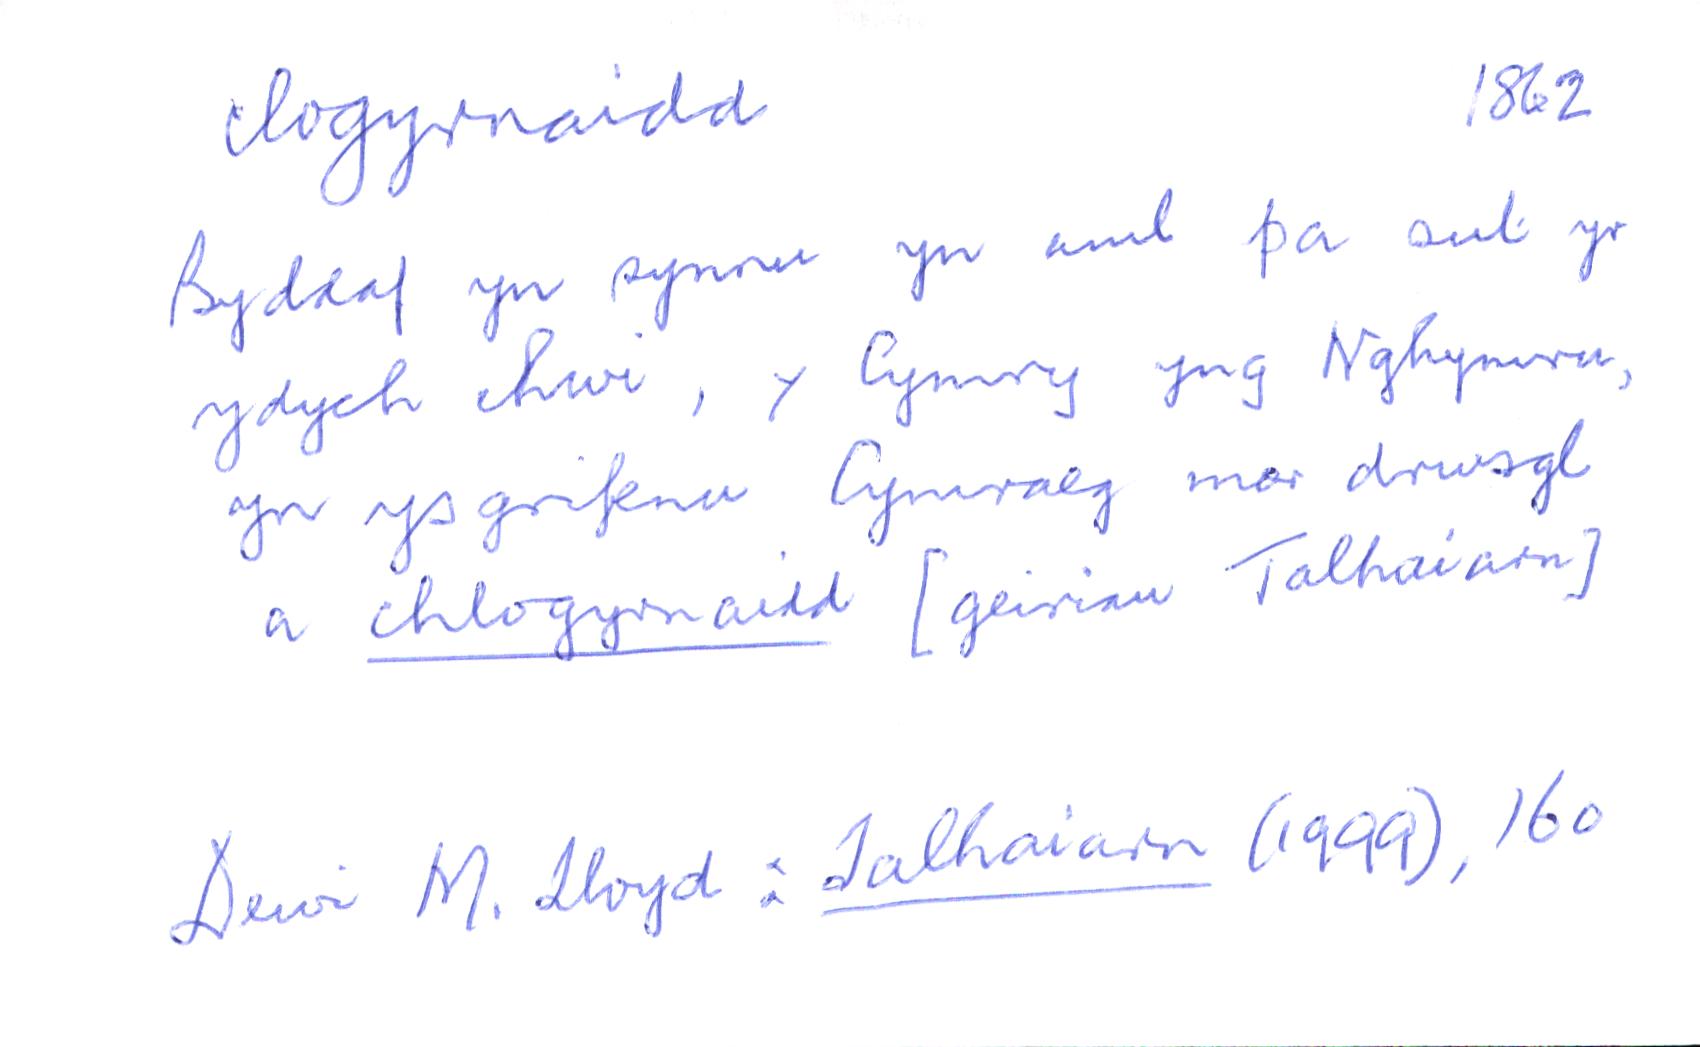 clogyrnaidd 1862
Byddaf yn synnu yn aml pa sut yr
ydych chwi, y Cymry yng Nghymru,
yn ysgrifenu Cymraeg mor drwsgl
a chlogyrnaidd [geiriau Talhaiarn]
Dewi M. Lloyd : Talhaiarn (1999), 160